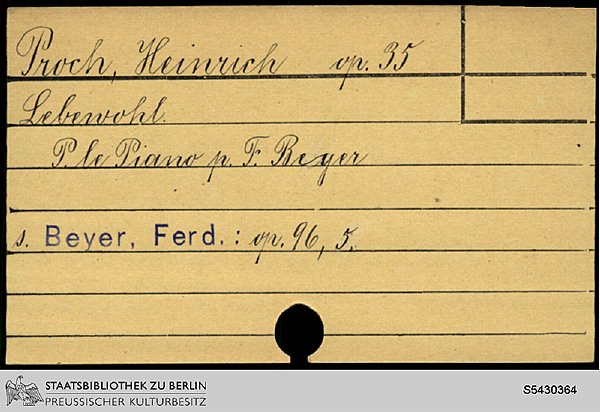 Proch, Heinrich op. 35
Lebewohl.
P. le Piano p. F. Beyer
s. Beyer, Ferd.: op. 96, 5.
STAATSBIBLIOTHEK ZU BERLIN
PREUSSISCHER KULTURBESITZ
S5430364